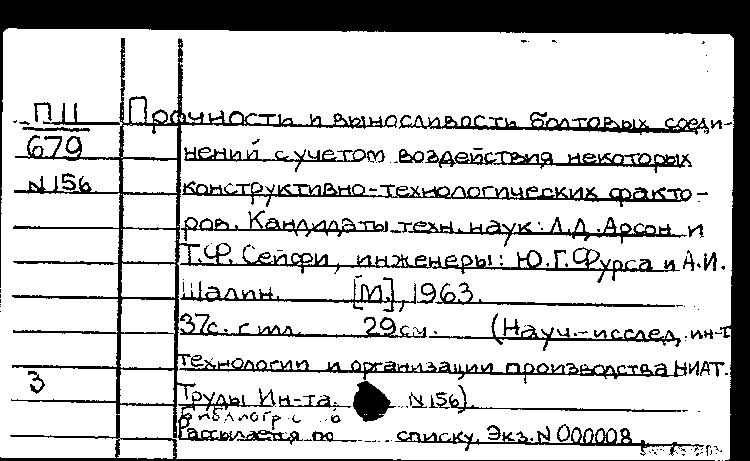 П II
679
N 156
3
Прочности и выносливости болтовых соеди-
нений с учетом воздействия некоторых
конструктивно-технологических факто-
ров. Кандидаты техн. наук: Л.Д. Арсон и
Т.Ф. Сейфи, инженеры: Ю.Г. Фурса и А.И.
Шалин. [М.], 1963.
37с. с илл. 29см. (Науч.-исслед. ин-т
технологии и организации производства НИАТ.
Труды Ин-та. N 156).
Библиогр с
Рассылается по списку. Экз. N 000008